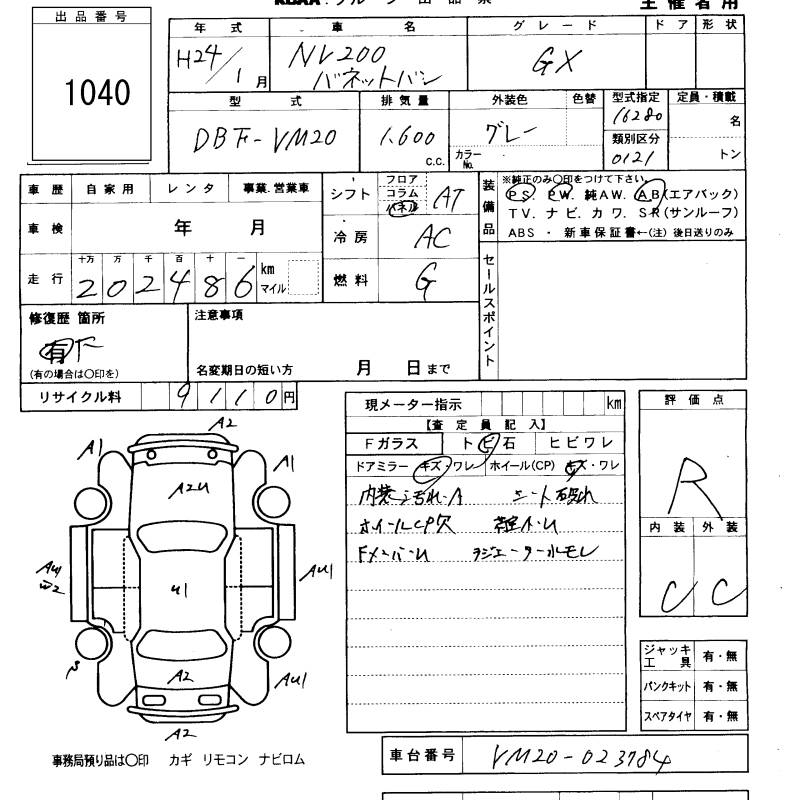 出品番号
1040
主催者用
年式 車名 グレード ドア 形状
H24/1月 NV200 バネットバン GX
型式 排気量 外装色 色替 型式指定 定員・積載
DBF-VM20 1,600 c.c. グレー カラーNo. 16280 名
類別区分
0121 トン
車歴 自家用 レンタ 事業.営業車
車検 年 月
走行 十万 万 千 百 十 一
202486 km マイル
シフト フロア コラム パネル AT
冷房 AC
燃料 G
装備品
※純正のみ○印をつけて下さい。
PS. PW. 純AW. AB(エアバック)
TV. ナビ. カワ. SR(サンルーフ)
ABS ・ 新車保証書←(注)後日送りのみ
セールスポイント
修復歴 箇所
有
(有の場合は○印を)
注意事項
名変期日の短い方 月 日まで
リサイクル料 9110円
現メーター指示 km
【査定員記入】
Fガラス トビ石 ヒビワレ
ドアミラー キズ・ワレ ホイール(CP) キズ・ワレ
内装汚れ・A シート破れ
ホイールCP欠 A・U
Fメンバー・U ラジエーター水モレ
評価点
R
内装 外装
C C
A2
A1 A1
A2U
AU W2 U1 AU1
A2 AU1
A2
ジャッキ工具 有・無
パンクキット 有・無
スペアタイヤ 有・無
事務局預り品は○印 カギ リモコン ナビロム
車台番号 VM20-023784